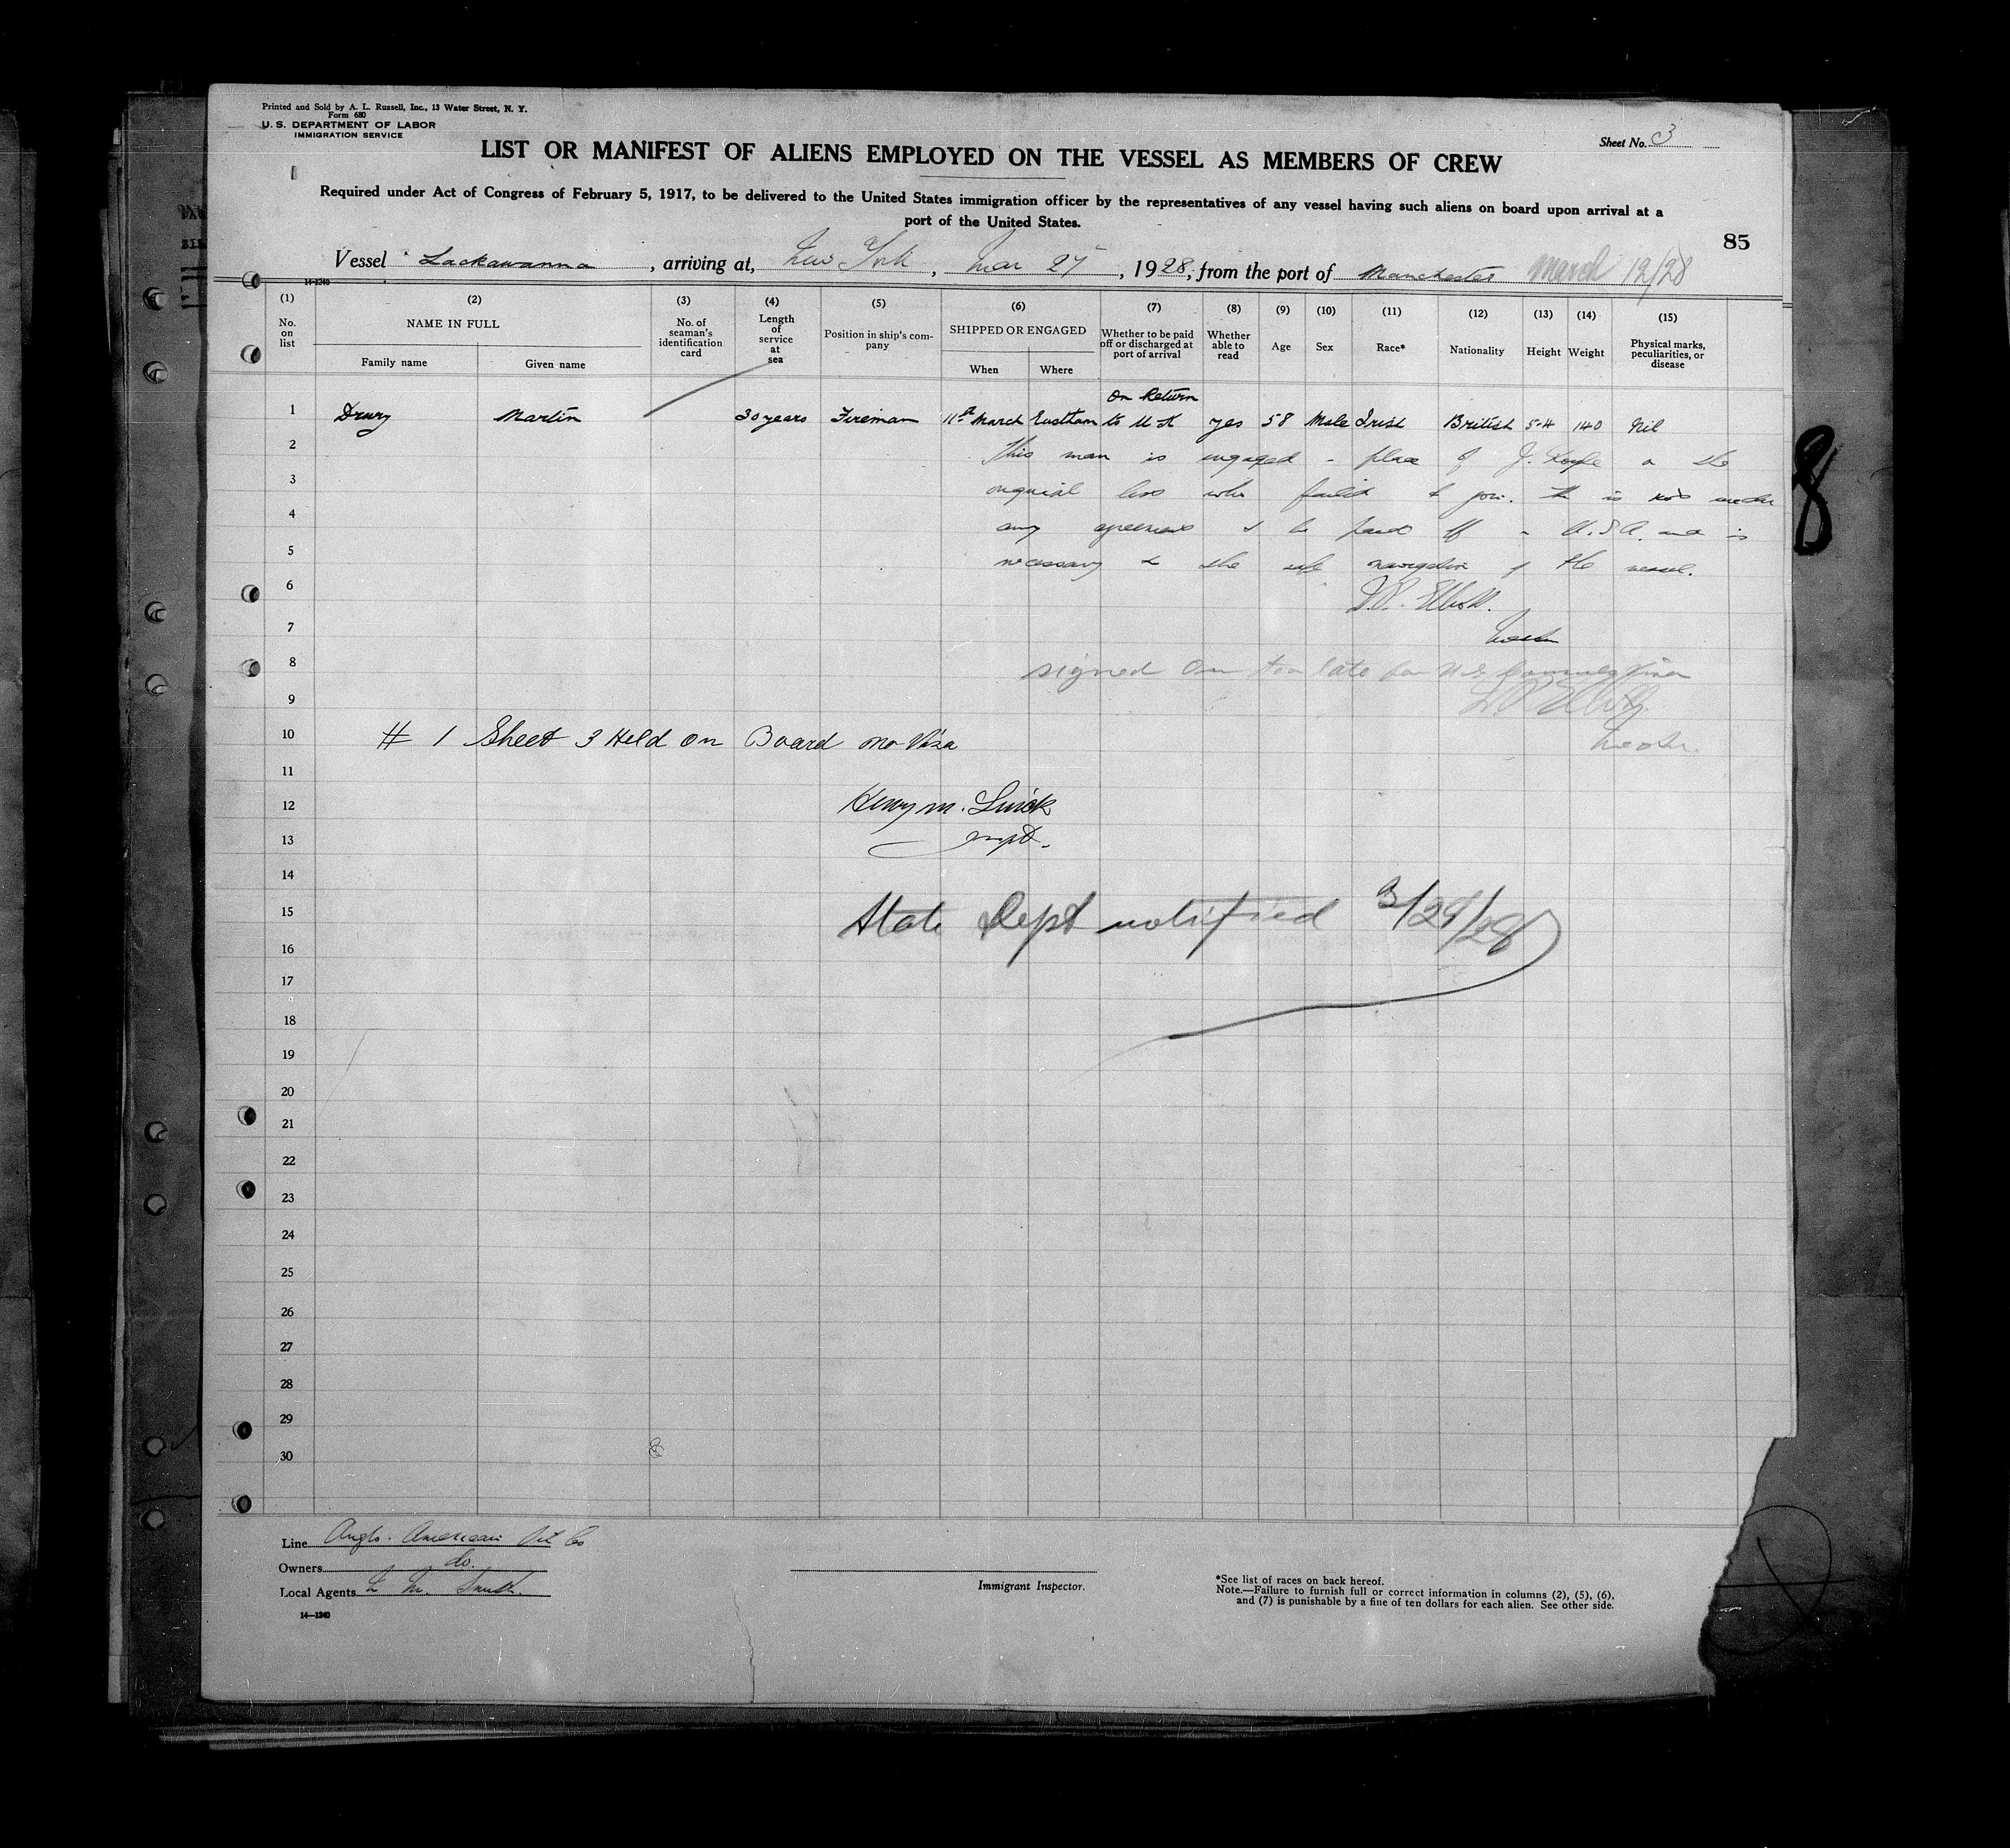 Printed and Sold by A. L. Russell, Inc., 13 Water Street, N. Y.
Form 680
U. S. DEPARTMENT OF LABOR
IMMIGRATION SERVICE
Sheet No. 3
LIST OR MANIFEST OF ALIENS EMPLOYED ON THE VESSEL AS MEMBERS OF CREW
Required under Act of Congress of February 5, 1917, to be delivered to the United States immigration officer by the representatives of any vessel having such aliens on board upon arrival at a
port of the United States.
85
Vessel Lackawanna, arriving at, New York, Mar 27, 1928, from the port of Manchester March 12/28
14-1240
(1) (2) (3) (4) (5) (6) (7) (8) (9) (10) (11) (12) (13) (14) (15)
No. on list NAME IN FULL Family name Given name No. of seaman's identification card Length of service at sea Position in ship's company SHIPPED OR ENGAGED When Where Whether to be paid off or discharged at port of arrival Whether able to read Age Sex Race* Nationality Height Weight Physical marks, peculiarities, or disease
On Return
1 Drury Martin 30 years Fireman 11th March Eastham to U K yes 58 Male Irish British 5-4 140 Nil
2 This man is engaged in place of J. on the
3 original list who failed to join. He is not under
4 any agreement to be paid off in U.S.A. and is
5 necessary to the safe navigation of the vessel.
6
7 Master
8 signed on too late for U.S. Visa
9
10 # 1 Sheet 3 Held on Board no Visa Master.
11
12 Henry M.
13 Inspt.
14
15 State Dept notified 3/29/28
16
17
18
19
20
21
22
23
24
25
26
27
28
29
30
Line Anglo-American Oil Co
Owners do.
Local Agents
14—1240
Immigrant Inspector.
*See list of races on back hereof.
Note.—Failure to furnish full or correct information in columns (2), (5), (6),
and (7) is punishable by a fine of ten dollars for each alien. See other side.
8